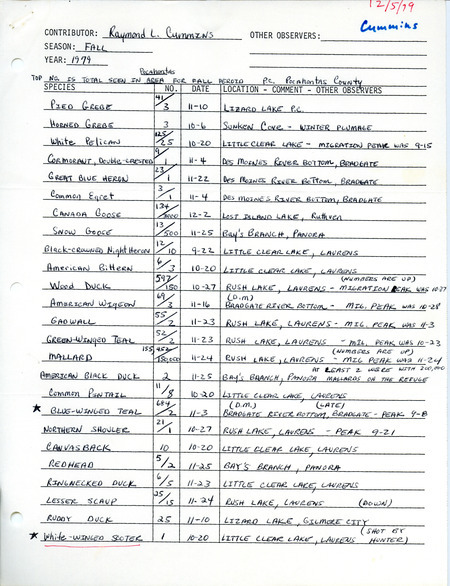 12/5/79
Cummins
CONTRIBUTOR: Raymond L. Cummins OTHER OBSERVERS:
SEASON: FALL
YEAR: 1979
Pocahontas
TOP NO. IS TOTAL SEEN IN AREA FOR FALL PERIOD P.C. Pocahontas County
SPECIES NO. DATE LOCATION - COMMENT - OTHER OBSERVERS
PIED GREBE 41/3 11-10 LIZARD LAKE P.C.
HORNED GREBE 3 10-6 SUNKEN COVE - WINTER PLUMAGE
White Pelican 125/25 10-20 LITTLE CLEAR LAKE - MIGRATION PEAK WAS 9-15
CORMORANT, DOUBLE-CRESTED 9/1 11-4 DES MOINES RIVER BOTTOM, BRADGATE
GREAT BLUE HERON 23/1 11-22 DES MOINES RIVER BOTTOM, BRADGATE
Common Egret 3/1 11-4 DES MOINES RIVER BOTTOM, BRADGATE
CANADA GOOSE 134/ 12-2 LOST ISLAND LAKE, Ruthven
SNOW GOOSE 13/500 11-25 BAY'S BRANCH, PANORA
Black-crowned Night Heron 12/10 9-22 LITTLE CLEAR LAKE, LAURENS
American Bittern 6/3 10-20 LITTLE CLEAR LAKE, LAURENS
(NUMBERS ARE UP)
Wood Duck 597/150 10-27 RUSH LAKE, LAURENS - MIGRATION PEAK WAS 10-27
(D.M.)
AMERICAN WIGEON 69/3 11-16 BRADGATE RIVER BOTTOM - MIG. PEAK WAS 10-28
GADWALL 55/2 11-23 RUSH LAKE, LAURENS - MIG. PEAK WAS 11-3
GREEN-WINGED TEAL 52/2 11-23 RUSH LAKE, LAURENS - MIG. PEAK WAS 10-23
(NUMBERS ARE UP)
MALLARD 155,452/150,000 11-24 RUSH LAKE, LAURENS - MIG PEAK WAS 11-24
AT LEAST 2 WERE WITH 200,000
AMERICAN BLACK DUCK 2 11-25 BAY'S BRANCH, PANORA MALLARDS ON THE REFUGE
Common PINTAIL 11/8 10-20 LITTLE CLEAR LAKE, LAURENS
(D.M.) (LATE)
★ BLUE-WINGED TEAL 684/2 11-3 BRADGATE RIVER BOTTOM, BRADGATE - PEAK 9-8
NORTHERN SHOVLER 21/1 10-27 RUSH LAKE, LAURENS - PEAK 9-21
CANVASBACK 10 10-20 LITTLE CLEAR LAKE, LAURENS
REDHEAD 5/2 11-25 BAY'S BRANCH, PANORA
RINGNECKED DUCK 6/5 11-23 LITTLE CLEAR LAKE, LAURENS
LESSER SCAUP 25/15 11-24 RUSH LAKE, LAURENS (DOWN)
RUDDY DUCK 25 11-10 LIZARD LAKE, GILMORE CITY
(SHOT BY
★ White-WINGED SCOTER 1 10-20 LITTLE CLEAR LAKE, LAURENS HUNTER)